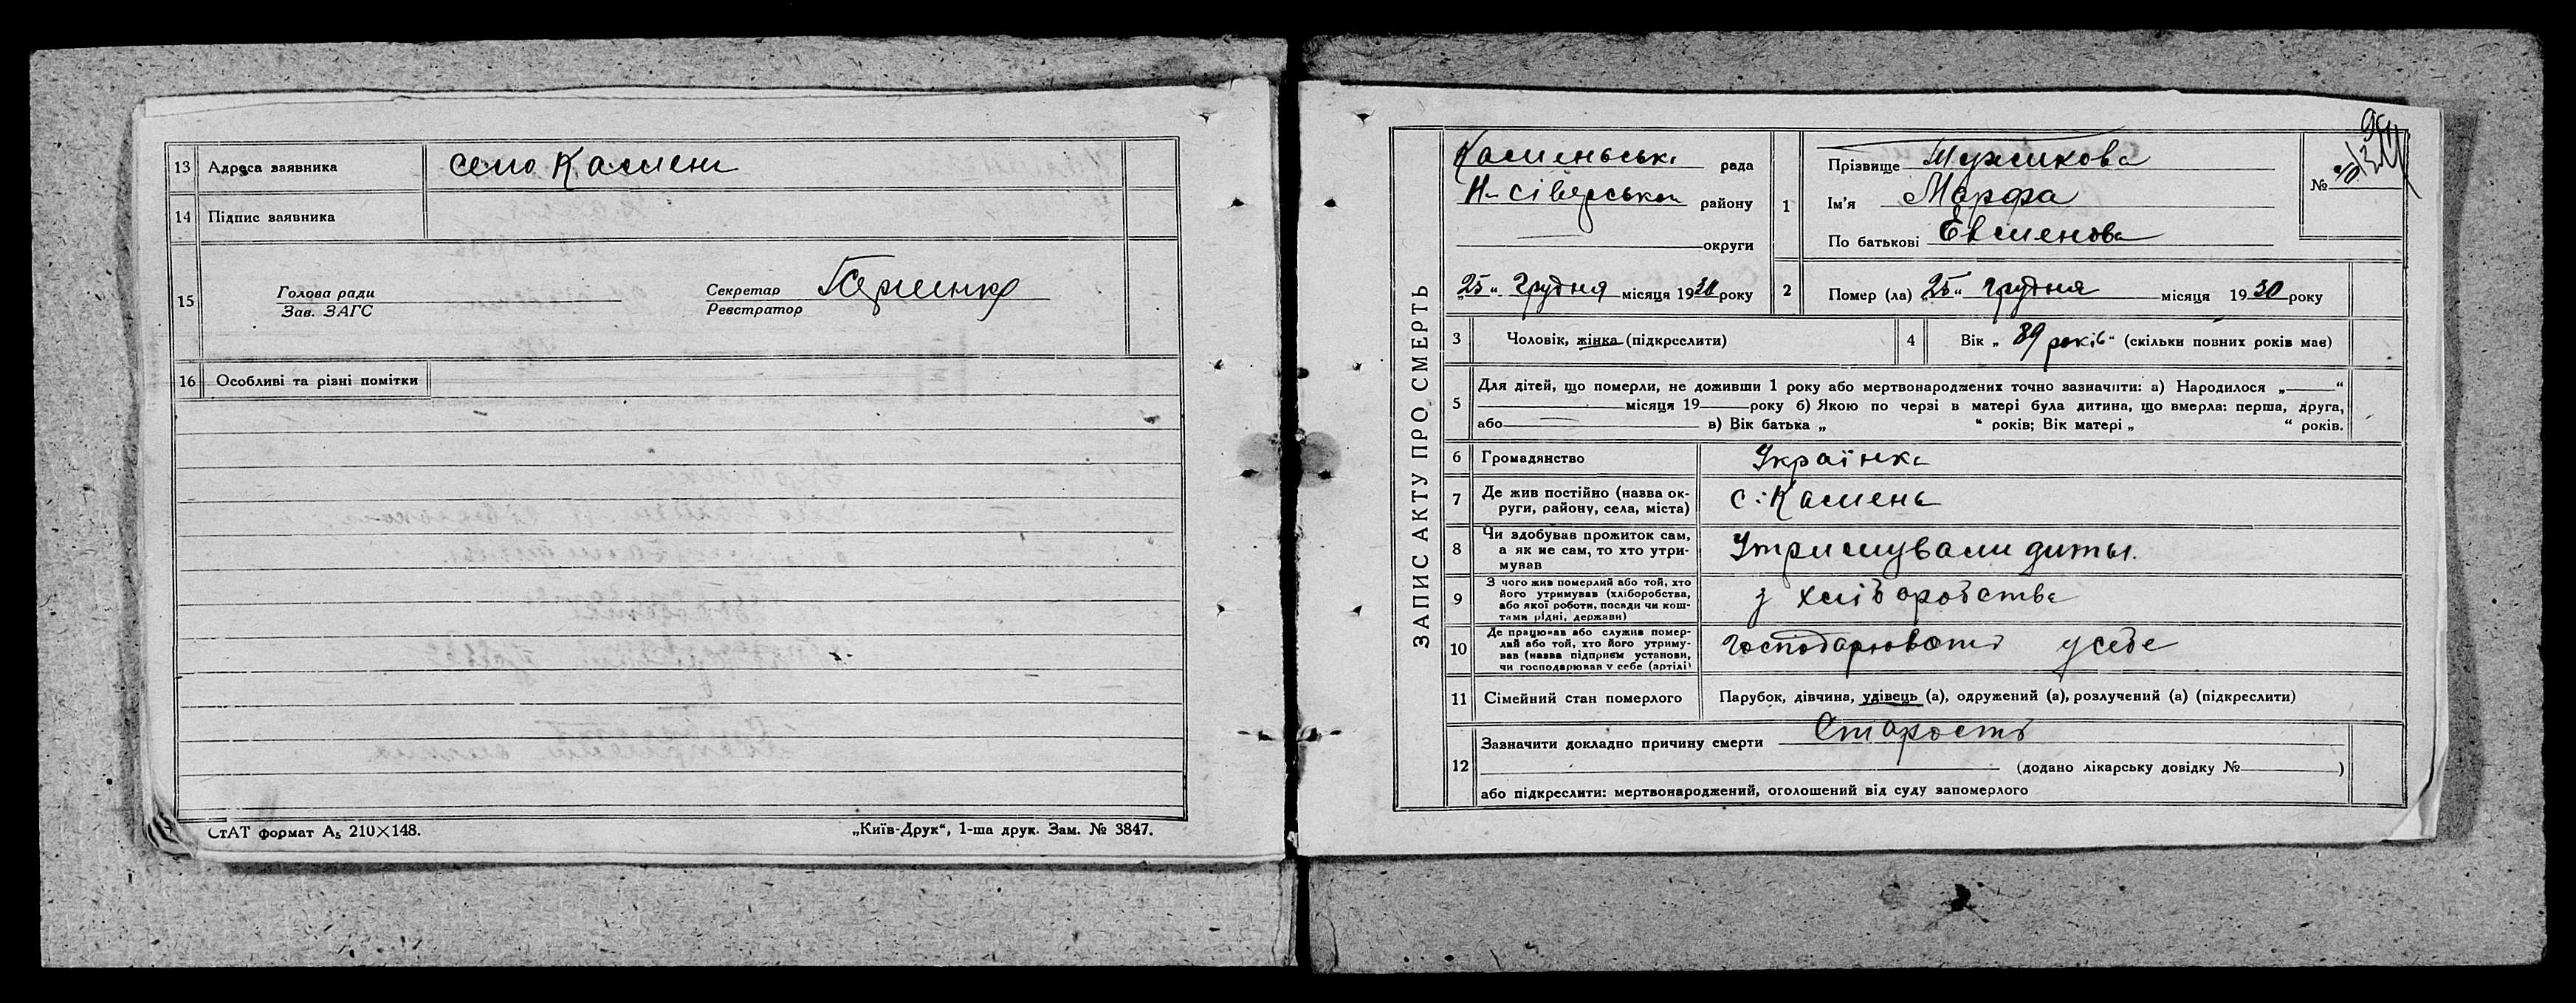 13 Адреса заявника село Камень
14 Підпис заявника
15 Голова ради
Зав. ЗАГС
Секретар
Реєстратор
16 Особливі та різні помітки
СтАТ формат А₅ 210×148.
„Київ-Друк“, 1-ша друк. Зам. № 3847.
ЗАПИС АКТУ ПРО СМЕРТЬ
Каменьська рада
Н-сіверського району
округи
„25“ Грудня місяця 1930 року
1 Прізвище
Ім'я Марфа
По батькові Евменова
№
2 Помер (ла) „25“ грудня місяця 1930 року
3 Чоловік, жінка (підкреслити)
4 Вік „89 років“ (скільки повних років має)
5 Для дітей, що померли, не доживши 1 року або мертвонароджених точно зазначити: а) Народилося „ “
місяця 19 року б) Якою по черзі в матері була дитина, що вмерла: перша, друга,
або в) Вік батька „ “ років; Вік матері „ “ років.
6 Громадянство Українка
7 Де жив постійно (назва округи, району, села, міста) с. Камень
8 Чи здобував прожиток сам, а як не сам, то хто утримував Утримували диты.
9 З чого жив померлий або той, хто його утримував (хліборобства, або якої роботи, посади чи коштами рідні, держави) з хліборобства
10 Де працював або служив померлий або той, хто його утримував (назва підприєм установи, чи господарював у себе (артілі) господарювати у себе
11 Сімейний стан померлого Парубок, дівчина, удівець (а), одружений (а), розлучений (а) (підкреслити)
12 Зазначити докладно причину смерти Старость
(додано лікарську довідку № )
або підкреслити: мертвонароджений, оголошений від суду запомерлого